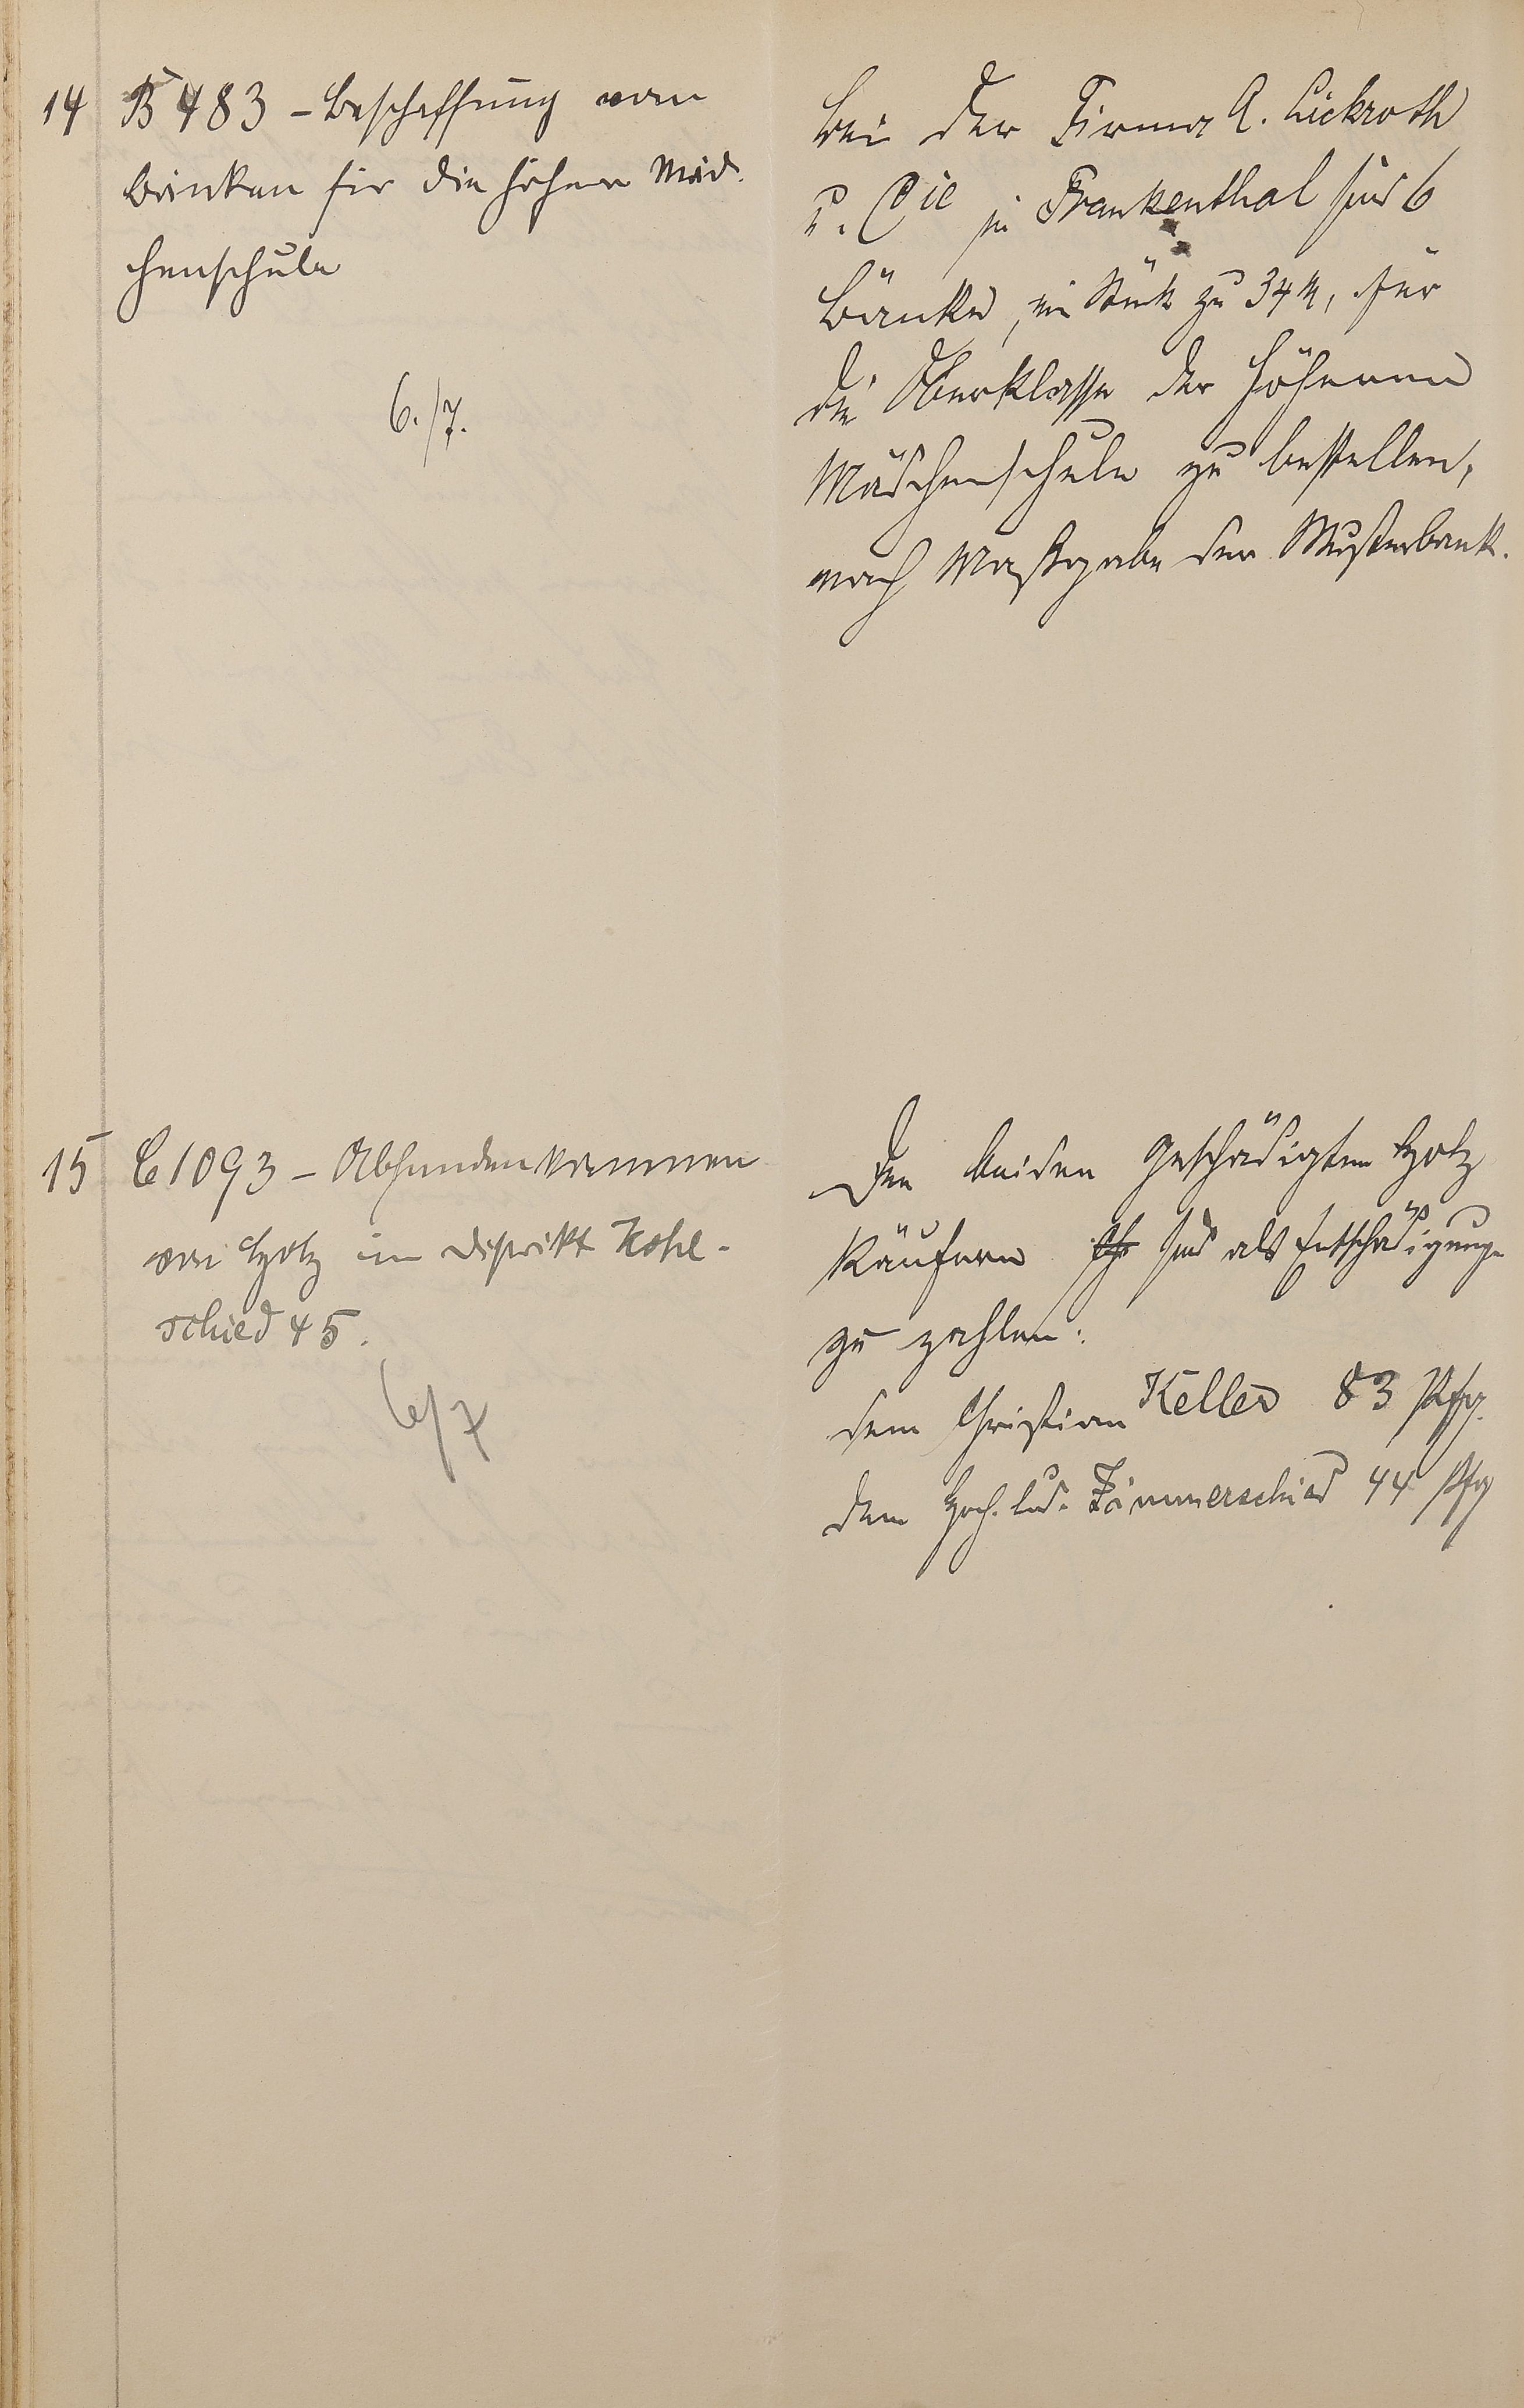 14 B 483 - Beschaffung von
Bänken für die höhere Mäd-
chenschule
6./7.
Bei der Firma A. Lickroth
u. Cie in Frankenthal sind 6
Bänke, ein Stück zu 34 M, für
die Oberklasse der höheren
Mädchenschule zu bestellen,
nach Maßgabe der Musterbank.
15 C 1093 - Abhandenkommen
von Holz im Distrikt Kohl-
schied 45.
6/7
Den beiden geschädigten Holz
käufern sind als Entschädigung
zu zahlen:
dem Christian Keller 83 Pfg.
dem Lud. Zimmerschied 44 Pfg